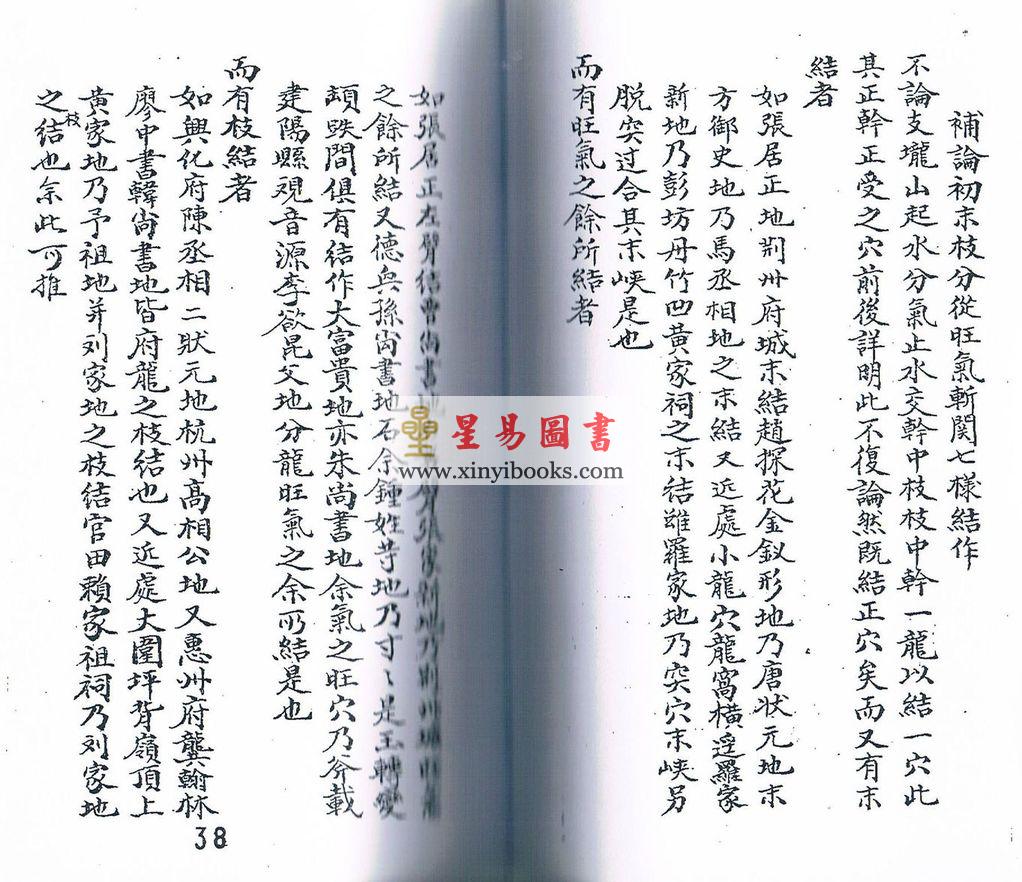 補論初末枝分從旺氣斬関七様結作
不論支壠山起水分氣止水交幹中枝枝中幹一龍以結一穴此
其正幹正受之穴前後詳明此不復論然既結正穴矣而又有末
結者
如張居正地荆州府城末結趙探花金釵形地乃唐狀元地末
方御史地乃馬丞相地之末結又近處小龍穴龍窩橫逕羅家
新地乃彭坊丹竹凹黃家祠之末结雖羅家地乃突穴末峡另
脱突过合其末峡是也
而有旺氣之餘所結者
如張居正左臂结曹尚書地 張家新地乃荆州
之餘所結又德兵孫尚書地石余鍾姓䒭地乃寸〻是玉轉变
頓跌間俱有结作大富貴地亦朱尚書地余氣之旺穴乃斧載
建陽縣覌音源李欲昆父地分龍旺氣之余所結是也
而有枝結者
如興化府陳丞相二狀元地杭州高相公地又惠州府龔翰林
廖中書韓尚書地皆府龍之枝结也又近處大圍坪背嶺頂上
黃家地乃予祖地并刘家地之枝结官田賴家祖祠乃刘家地
之枝结也余此可推
38
星易圖書
www.xinyibooks.com